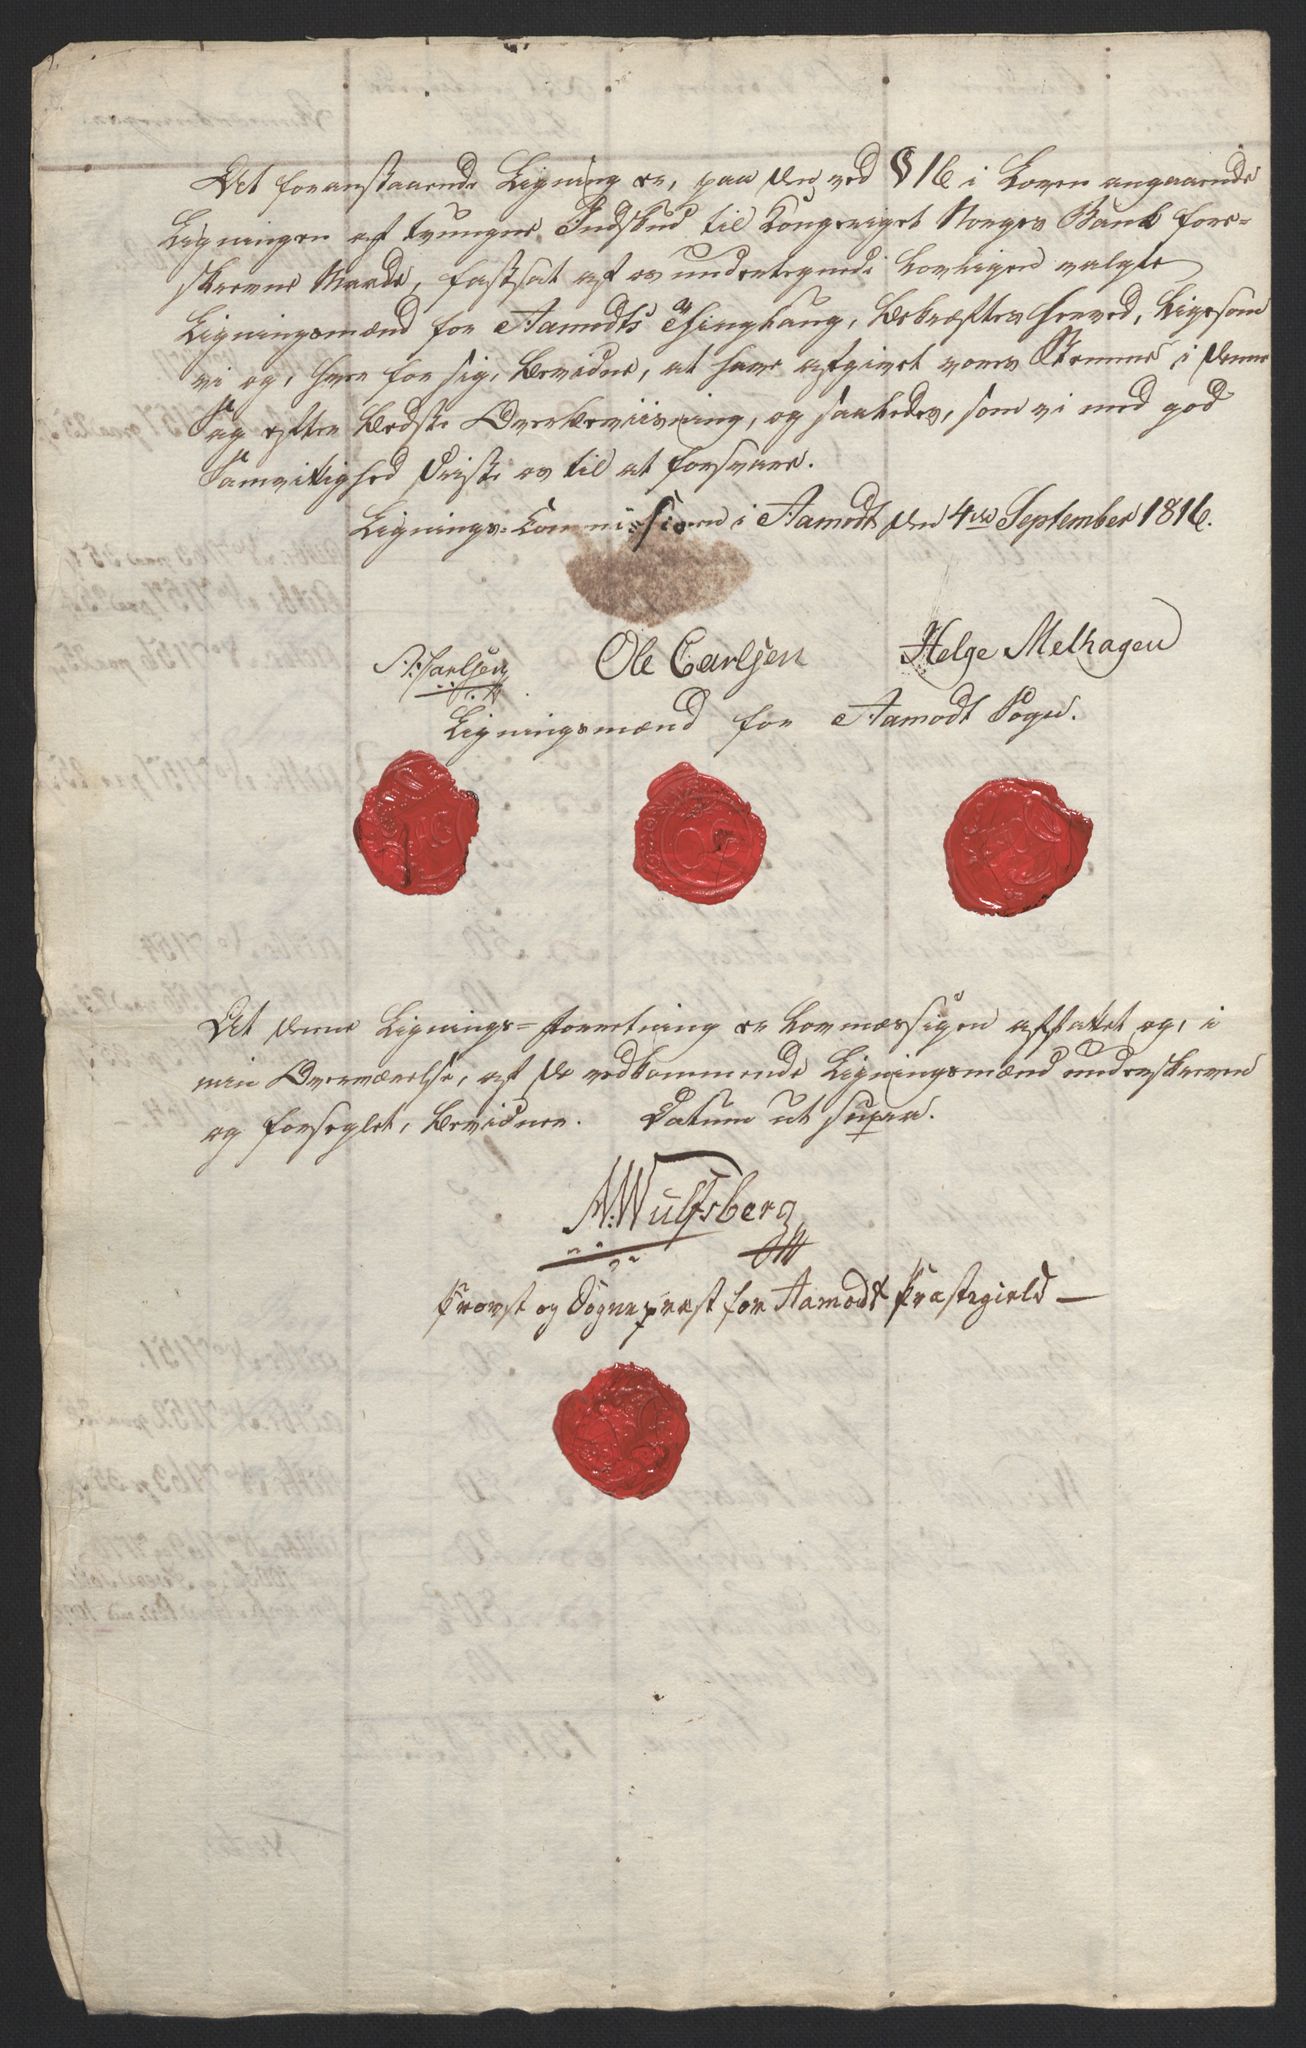 At foranstaaende Ligning er, paa den ved § 16 i Loven angaaende
Ligningen af tvungne Indskud til Kongeriget Norges Bank fore-
skrevne Maade, fastsat af os undertegnede lovligen valgte
Ligningsmænd for Aamodts Thinglaug, bekræftes herved, ligesom
vi og, hver for sig, bevidne, at have afgivet vores Stemme i denne
Sag efter bedste Overbeviisning, og saaledes, som vi med god
Samvittighed driste os til at forsvare.
Lignings-Commissionen i Aamodt den 4de September 1816.
Carlsen Ole Carlsen Helge Melhagen
Ligningsmænd for Aamodt Sogn.
At denne Lignings-Forretning er lovmæssigen affattet og, i
min Overværelse, af de vedkommende Ligningsmænd underskreven
og forseglet, bevidner. Datum ut supra.
N: Wulfsberg
Provst og Sogneprest for Aamodt Præstegield —